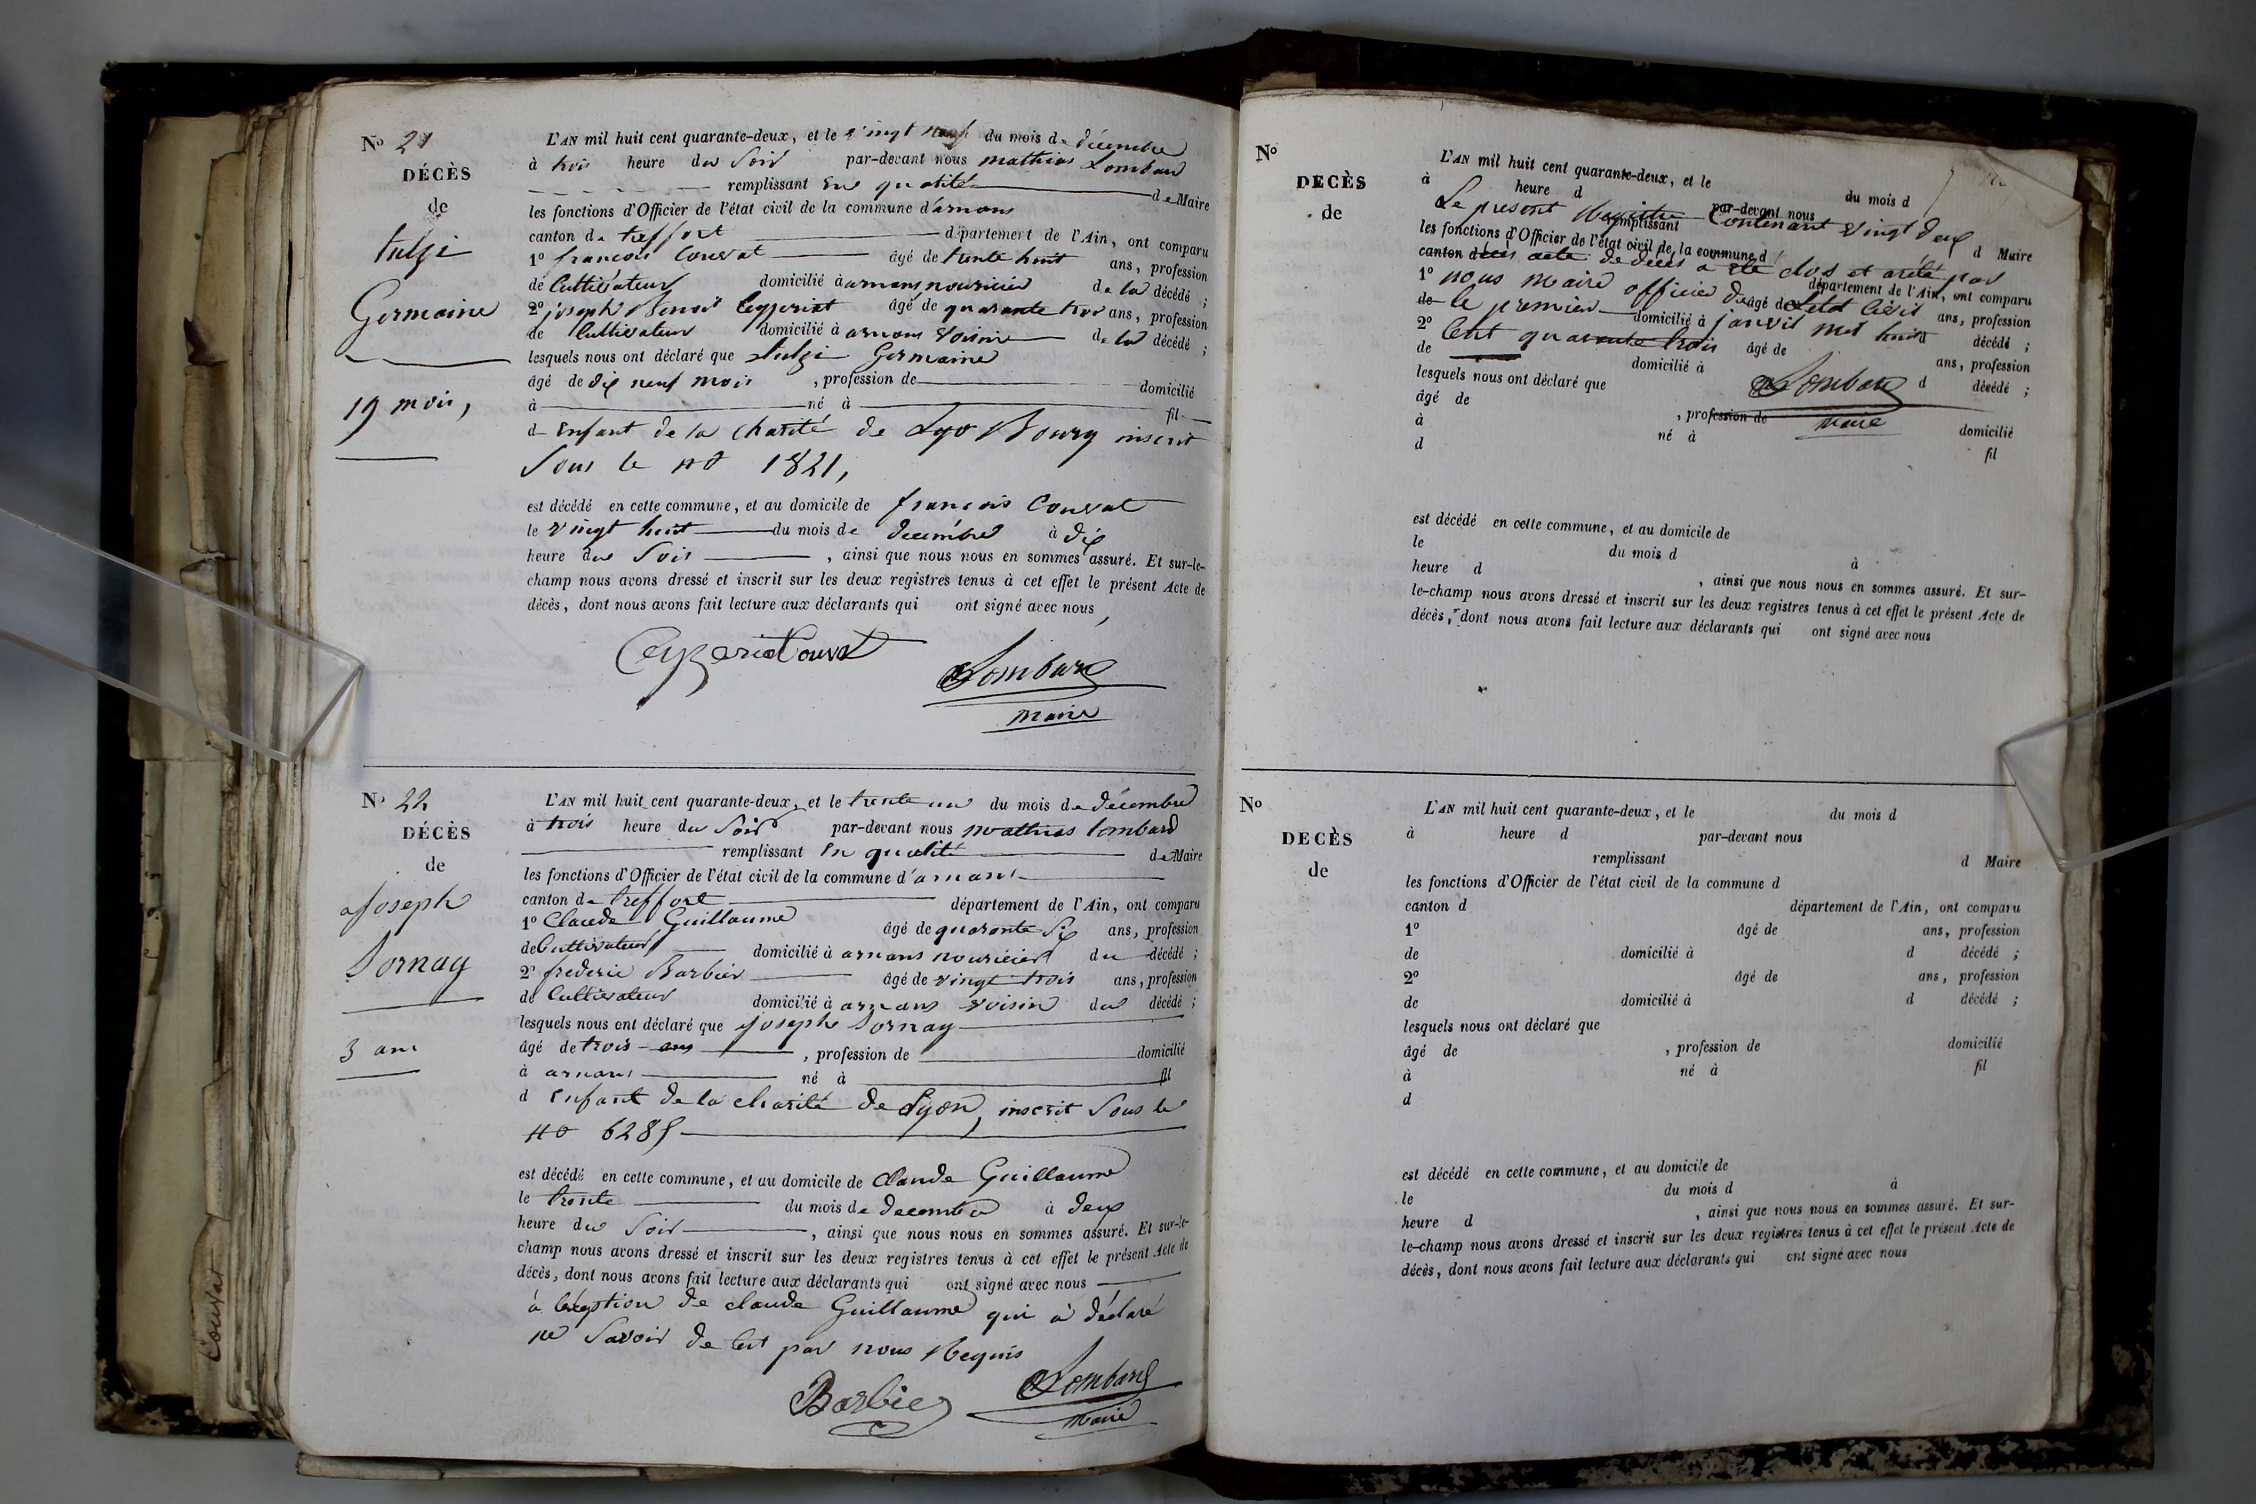 No 21
DÉCÈS
de
Germaine
19 mois,
L'AN mil huit cent quarante-deux, et le vingt neuf du mois de décembre
à trois heure du Soir par-devant nous mathias Lombard
remplissant en qualité de Maire
les fonctions d'Officier de l'état civil de la commune d'arnans
canton de treffort département de l'Ain, ont comparu
1º francois Convat âgé de trente huit ans, profession
de Cultivateur domicilié à arnans nouricier de la décédé ;
2º joseph Benoit Ceyzeriat âgé de quarante trois ans, profession
de Cultivateur domicilié à arnans voisin de la décédé ;
lesquels nous ont déclaré que Germaine
âgé de dix neuf mois , profession de domicilié
à né à fil
d Enfant de la Charité de Bourg inscrit
Sous le no 1821,
est décédé en cette commune, et au domicile de françois Convat
le vingt huit du mois de decembre à dix
heure du Soir , ainsi que nous nous en sommes assuré. Et sur-le-
champ nous avons dressé et inscrit sur les deux registres tenus à cet effet le présent Acte de
décès, dont nous avons fait lecture aux déclarants qui ont signé avec nous,
Ceyzeriat Convat
Lombard
maire
No 22
DÉCÈS
de
Joseph
Sornay
3 ans
L'AN mil huit cent quarante-deux, et le trente un du mois de décembre
à trois heure du Soir par-devant nous mathias lombard
remplissant En qualité de Maire
les fonctions d'Officier de l'état civil de la commune d'arnans
canton de treffort département de l'Ain, ont comparu
1º Claude Guillaume âgé de quarante Six ans, profession
de Cultivateur domicilié à arnans nouricier du décédé ;
2º frederic Barbier âgé de vingt trois ans, profession
de Cultivateur domicilié à arnans voisin du décédé ;
lesquels nous ont déclaré que Joseph Sornay
âgé de trois ans , profession de domicilié
à arnans né à fil
d Enfant de la charité de Lyon, inscrit Sous le
no 6285
est décédé en cette commune, et au domicile de claude Guillaume
le trente du mois de decembre à deux
heure du Soir , ainsi que nous nous en sommes assuré. Et sur-le-
champ nous avons dressé et inscrit sur les deux registres tenus à cet effet le présent Acte de
décès, dont nous avons fait lecture aux déclarants qui ont signé avec nous
à de claude Guillaume qui à déclaré
ne Savoir de par nous Requis
Barbier
Lombard
maire
Convat
No
DECÈS
de
L'AN mil huit cent quarante-deux, et le du mois d
à heure d par-devant nous
Le present Registre Contenant vingt deux
remplissant d Maire
les fonctions d'Officier de l'état civil de la commune d
acte de décès a été clos et arêté par
canton d département de l'Ain, ont comparu
nous maire officier de Létat Civil
1º âgé de ans, profession
le premier janvier mil huit
de domicilié à d décédé ;
Cent quarante trois
2º âgé de ans, profession
de domicilié à d décédé ;
Lombard
maire
lesquels nous ont déclaré que
âgé de , profession de domicilié
à né à fil
d
est décédé en cette commune, et au domicile de
le du mois d à
heure d , ainsi que nous nous en sommes assuré. Et sur-
le-champ nous avons dressé et inscrit sur les deux registres tenus à cet effet le présent Acte de
décès, dont nous avons fait lecture aux déclarants qui ont signé avec nous
No
DECÈS
de
L'AN mil huit cent quarante-deux, et le du mois d
à heure d par-devant nous
remplissant d Maire
les fonctions d'Officier de l'état civil de la commune d
canton d département de l'Ain, ont comparu
1º âgé de ans, profession
de domicilié à d décédé ;
2º âgé de ans, profession
de domicilié à d décédé ;
lesquels nous ont déclaré que
âgé de , profession de domicilié
à né à fil
d
est décédé en cette commune, et au domicile de
le du mois d à
heure d , ainsi que nous nous en sommes assuré. Et sur-
le-champ nous avons dressé et inscrit sur les deux registres tenus à cet effet le présent Acte de
décès, dont nous avons fait lecture aux déclarants qui ont signé avec nous